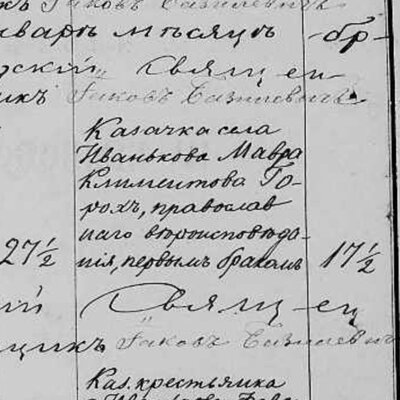 Іаковъ Базилевичъ
варь мѣсяцъ бр-
дскій Священ-
икъ Іаковъ Базилевичъ
Казачка села
Иванькова Мавра
Климентова Го-
рохъ, православ
наго вѣроисповѣда-
27½ нія, первымъ бракомъ 17½
кій Священ
щикъ Іаковъ Базилевич
Каз. крестьянка